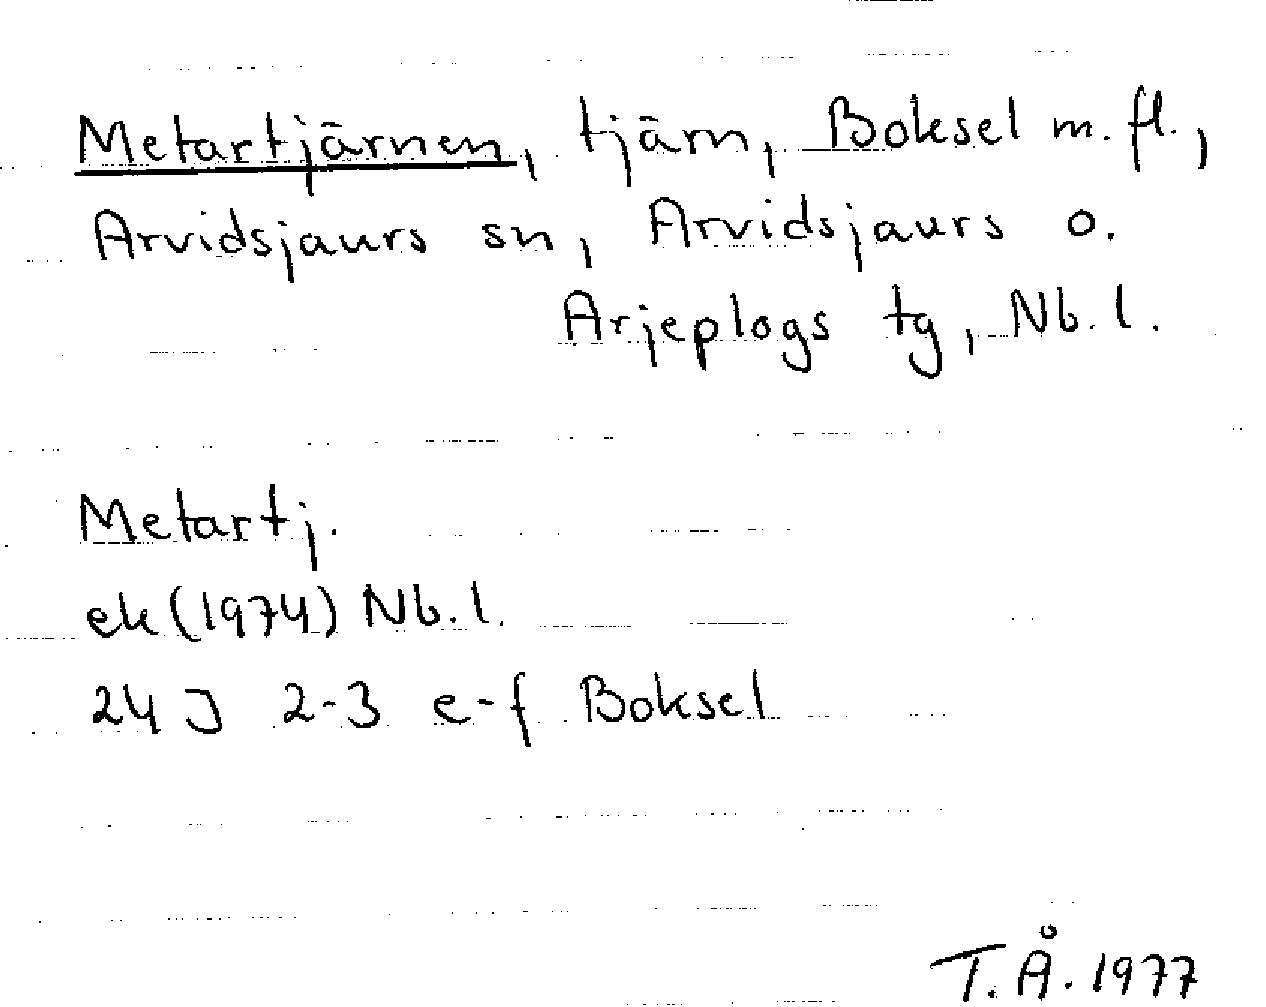 Metartjärnen, tjärn, Boksel m. fl.,
Arvidsjaurs sn, Arvidsjaurs o.
Arjeplogs tg, Nb. l.
Metartj.
ek (1974) Nb. l.
24 J 2-3 e-f Boksel
T. Å. 1977